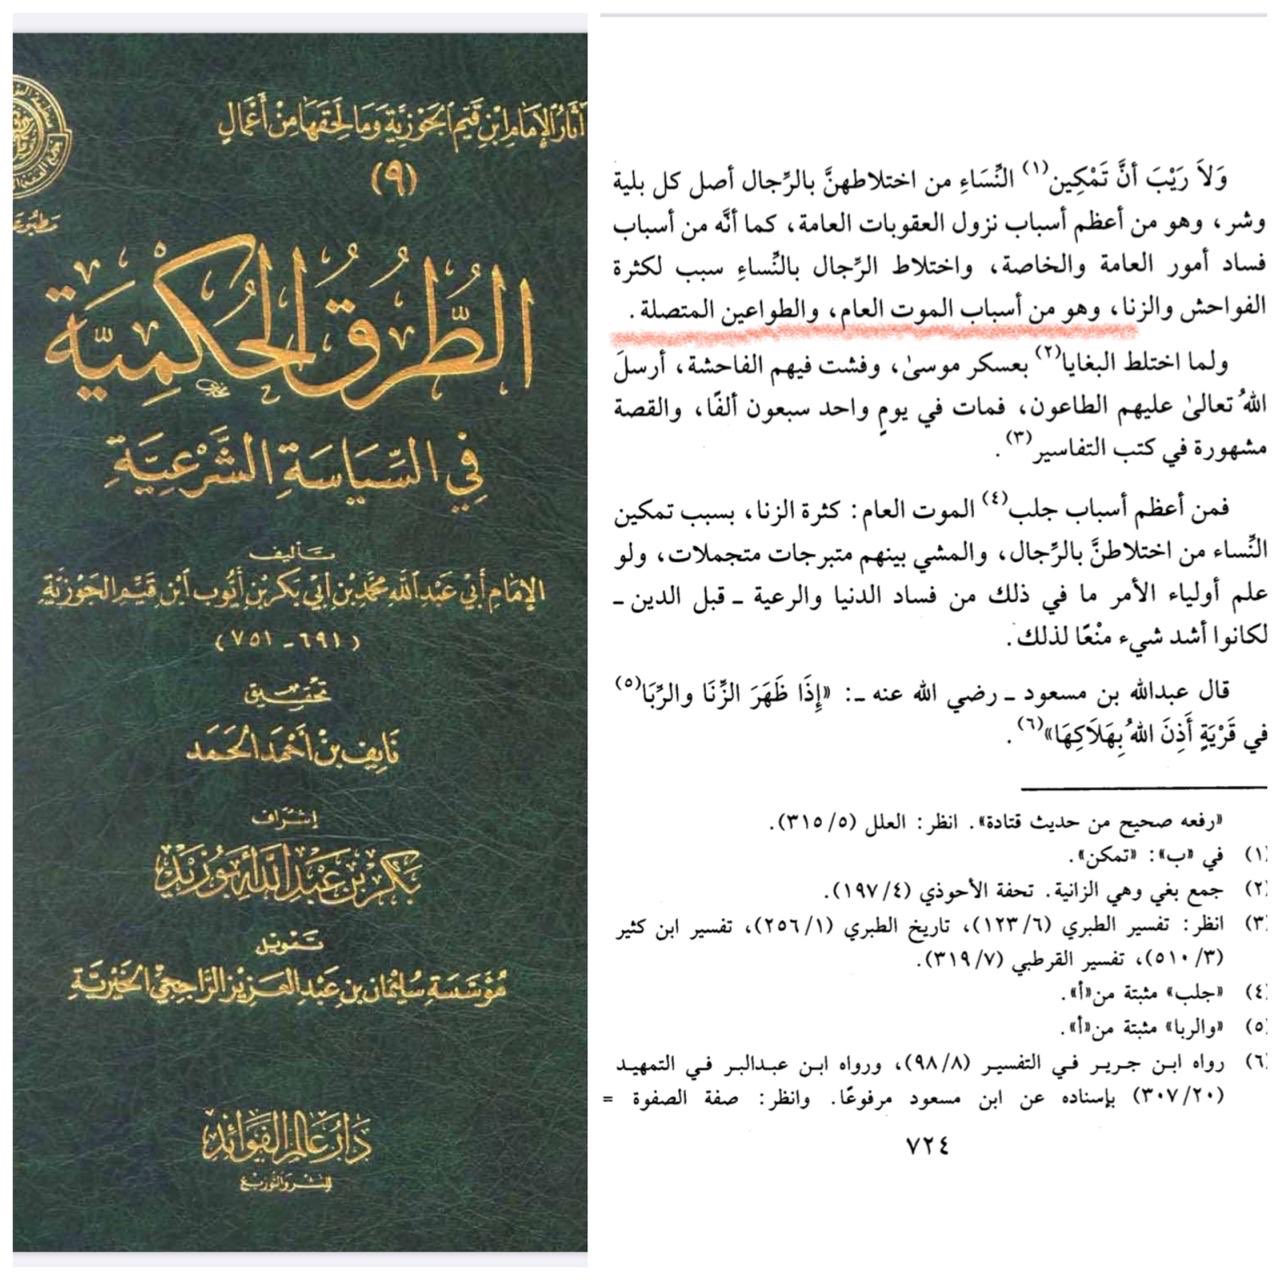 آثار الإمام ابن قيم الجوزية وما لحقها من أعمال
(٩)
الطُّرُقُ الحُكْمِيَّة
فِي السِّيَاسَةِ الشَّرْعِيَّةِ
تأليف
الإمام أبي عبد الله محمد بن أبي بكر بن أيوب ابن قيم الجوزية
(٦٩١ - ٧٥١)
تحقيق
نايف بن أحمد الحمد
إشراف
بكر بن عبد الله أبو زيد
تمويل
مؤسسة سليمان بن عبد العزيز الراجحي الخيرية
دار عالم الفوائد
للنشر والتوزيع
وَلاَ رَيْبَ أنَّ تَمْكِين(١) النِّسَاءِ من اختلاطهنَّ بالرِّجال أصل كل بلية
وشر، وهو من أعظم أسباب نزول العقوبات العامة، كما أنَّه من أسباب
فساد أمور العامة والخاصة، واختلاط الرِّجال بالنِّساءِ سبب لكثرة
الفواحش والزنا، وهو من أسباب الموت العام، والطواعين المتصلة.
ولما اختلط البغايا(٢) بعسكر موسىٰ، وفشت فيهم الفاحشة، أرسلَ
اللهُ تعالىٰ عليهم الطاعون، فمات في يومٍ واحد سبعون ألفًا، والقصة
مشهورة في كتب التفاسير(٣).
فمن أعظم أسباب جلب(٤) الموت العام: كثرة الزنا، بسبب تمكين
النِّساء من اختلاطنَّ بالرِّجال، والمشي بينهم متبرجات متجملات، ولو
علم أولياء الأمر ما في ذلك من فساد الدنيا والرعية ـ قبل الدين ـ
لكانوا أشد شيء منْعًا لذلك.
قال عبدالله بن مسعود ـ رضي الله عنه ـ: «إِذَا ظَهَرَ الزِّنَا والرِّبَا(٥)
في قَرْيَةٍ أَذِنَ اللهُ بِهَلَاكِهَا»(٦).
«رفعه صحيح من حديث قتادة». انظر: العلل (٣١٥/٥).
(١) في «ب»: «تمكن».
(٢) جمع بغي وهي الزانية. تحفة الأحوذي (١٩٧/٤).
(٣) انظر: تفسير الطبري (١٢٣/٦)، تاريخ الطبري (٢٥٦/١)، تفسير ابن كثير
(٥١٠/٣)، تفسير القرطبي (٣١٩/٧).
(٤) «جلب» مثبتة من«أ».
(٥) «والربا» مثبتة من«أ».
(٦) رواه ابن جرير في التفسير (٩٨/٨)، ورواه ابن عبدالبر في التمهيد
(٣٠٧/٢٠) بإسناده عن ابن مسعود مرفوعًا. وانظر: صفة الصفوة =
٧٢٤